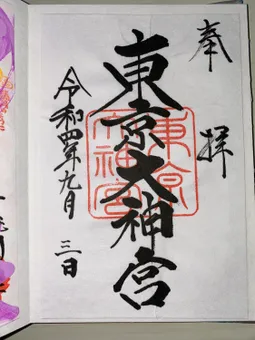 奉拝
東京大神宮
東京大神宮
令和四年九月三日